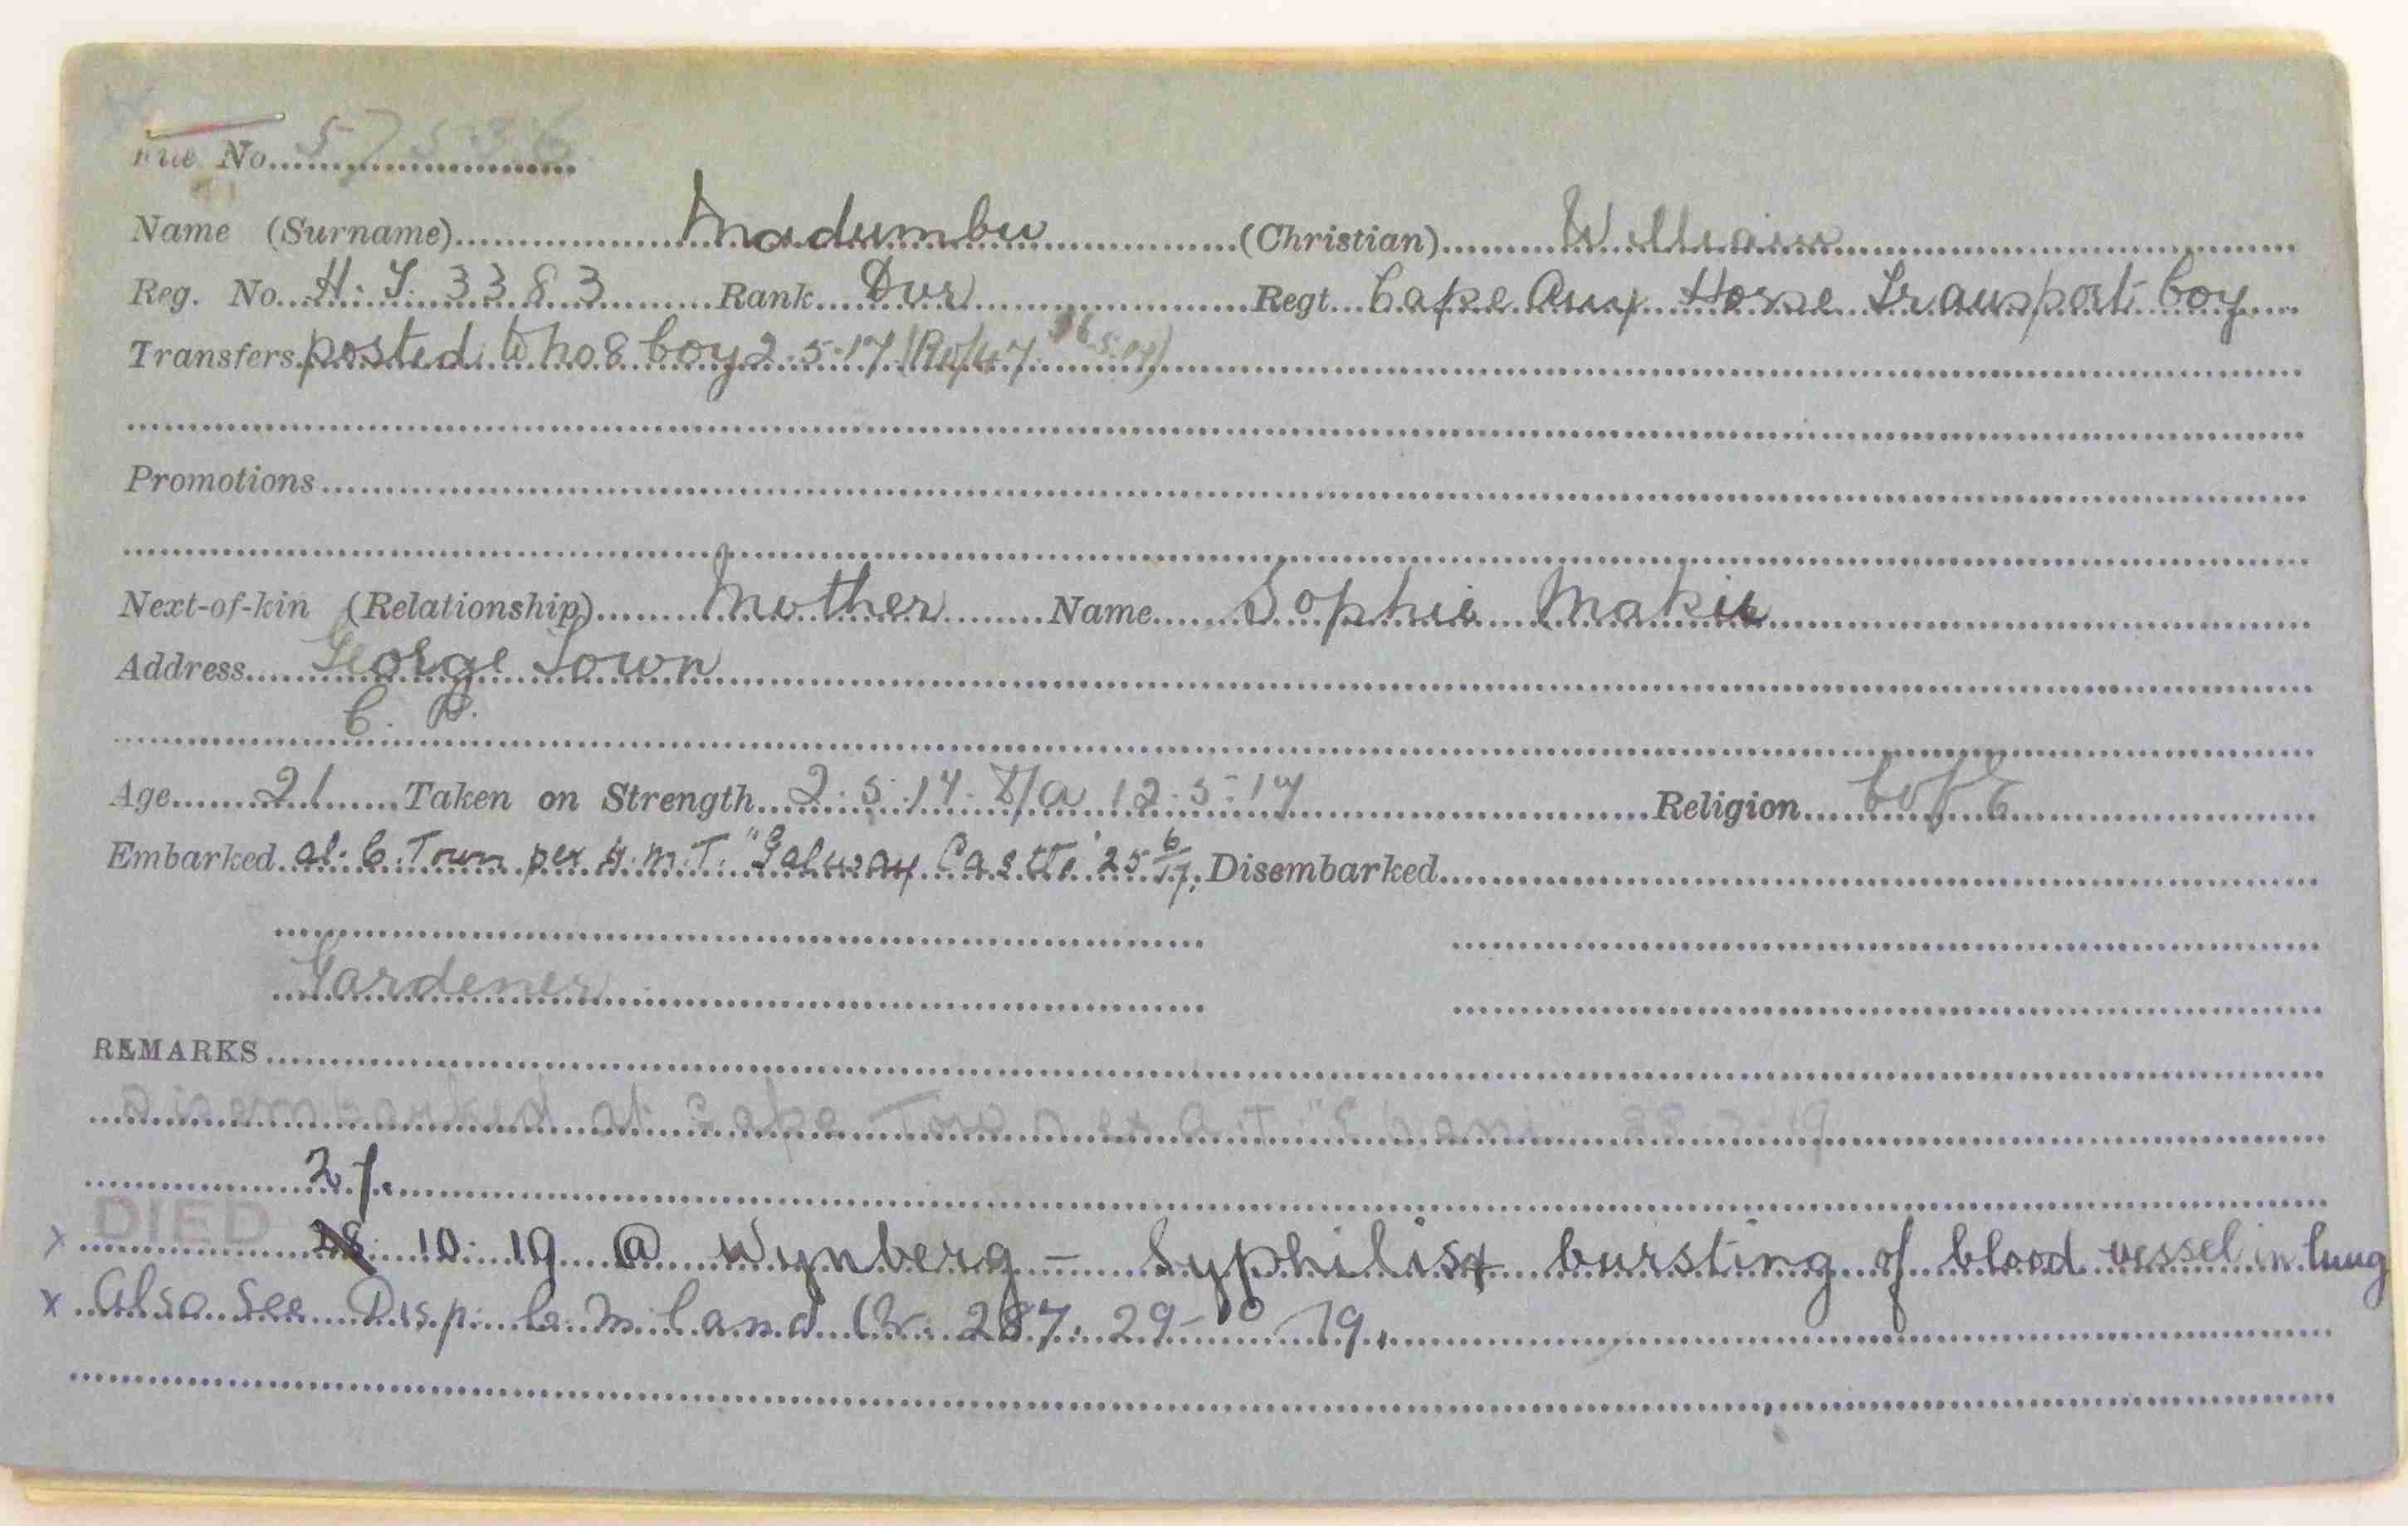 File No. 57536
Name (Surname) Madumbu (Christian) William
Reg. No. H.T. 3383 Rank Dvr Regt. Cape Aux Horse Transport Coy
Transfers posted to No 8 Coy 2.5.17 (Ro/47 16.5.17)
Promotions
Next-of-kin (Relationship) Mother Name Sophie Makie
Address George Town
C. P.
Age 21 Taken on Strength 2.5.17. T/A 12.5.17 Religion C of E
Embarked at C. Town per H.M.T. "Galway Castle" 25 6/17. Disembarked
Gardener
REMARKS
Disembarked at Cape Town ex A.T. "Ebani" 9
27.
x DIED 28. 10. 19 @ Wynberg - Syphilis + bursting of blood vessel in lung
x Also See Disp. C. M. Cand Or. 287. 29-10-19.